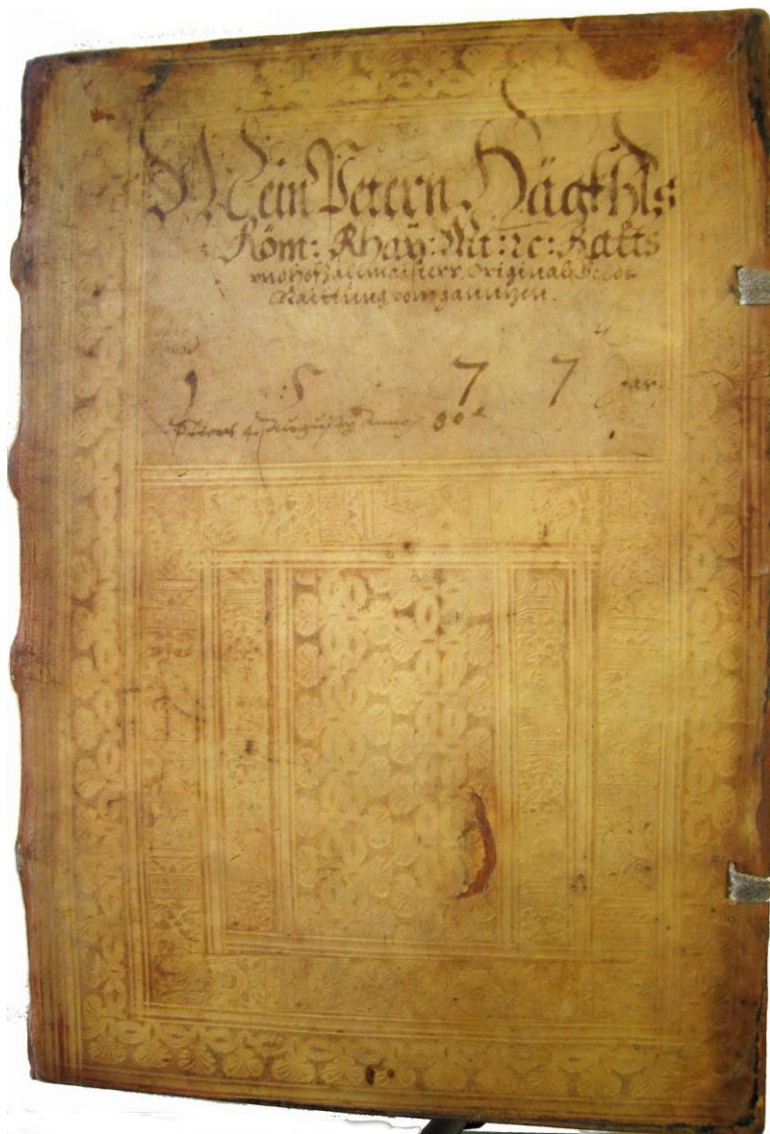 Mein Petern Hägkhls
Röm: Khay: Mt: ꝛc: Ratts
vnd Hofzalmaisters Original
Raittung vom ganntzen
1 5 7 7 Jar
4 Augusty Anno 80